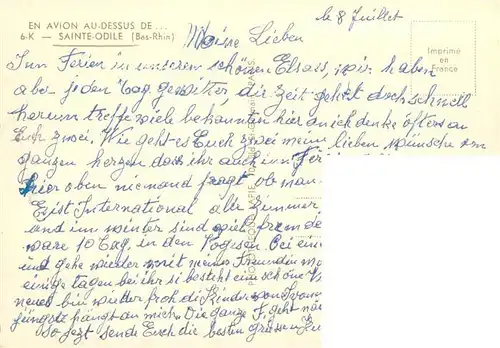 EN AVION AU-DESSUS DE...
6-K — SAINTE-ODILE (Bas-Rhin)
le 8 Juillet
Meine Lieben
Imprimé
en
France
Inn Ferien in unseren schönen Elsass, wir haben
aber jeden Tag gewitter, die Zeit gehet doch schnell
herum treffe viele bekannten hier an ich denke öfters an
Euch zwei. Wie geht es Euch zwei mein lieben wünsche vom
ganzen herzen dass ihr auch inn Fer
hier oben niemand fragt ob man
Es ist International alle Zimmer
und im winter sind viel fremde
ware 10 Tag in den Vogesen. Bei ein
und gehe wieder mit meiner Freundin m
einige tagen bei ihr si besteht eine schöne
neues bin weiter froh di Kinder von
jüngste hängt an mich. Die ganze F. geht nä
So jezt sende Euch die besten grüsse